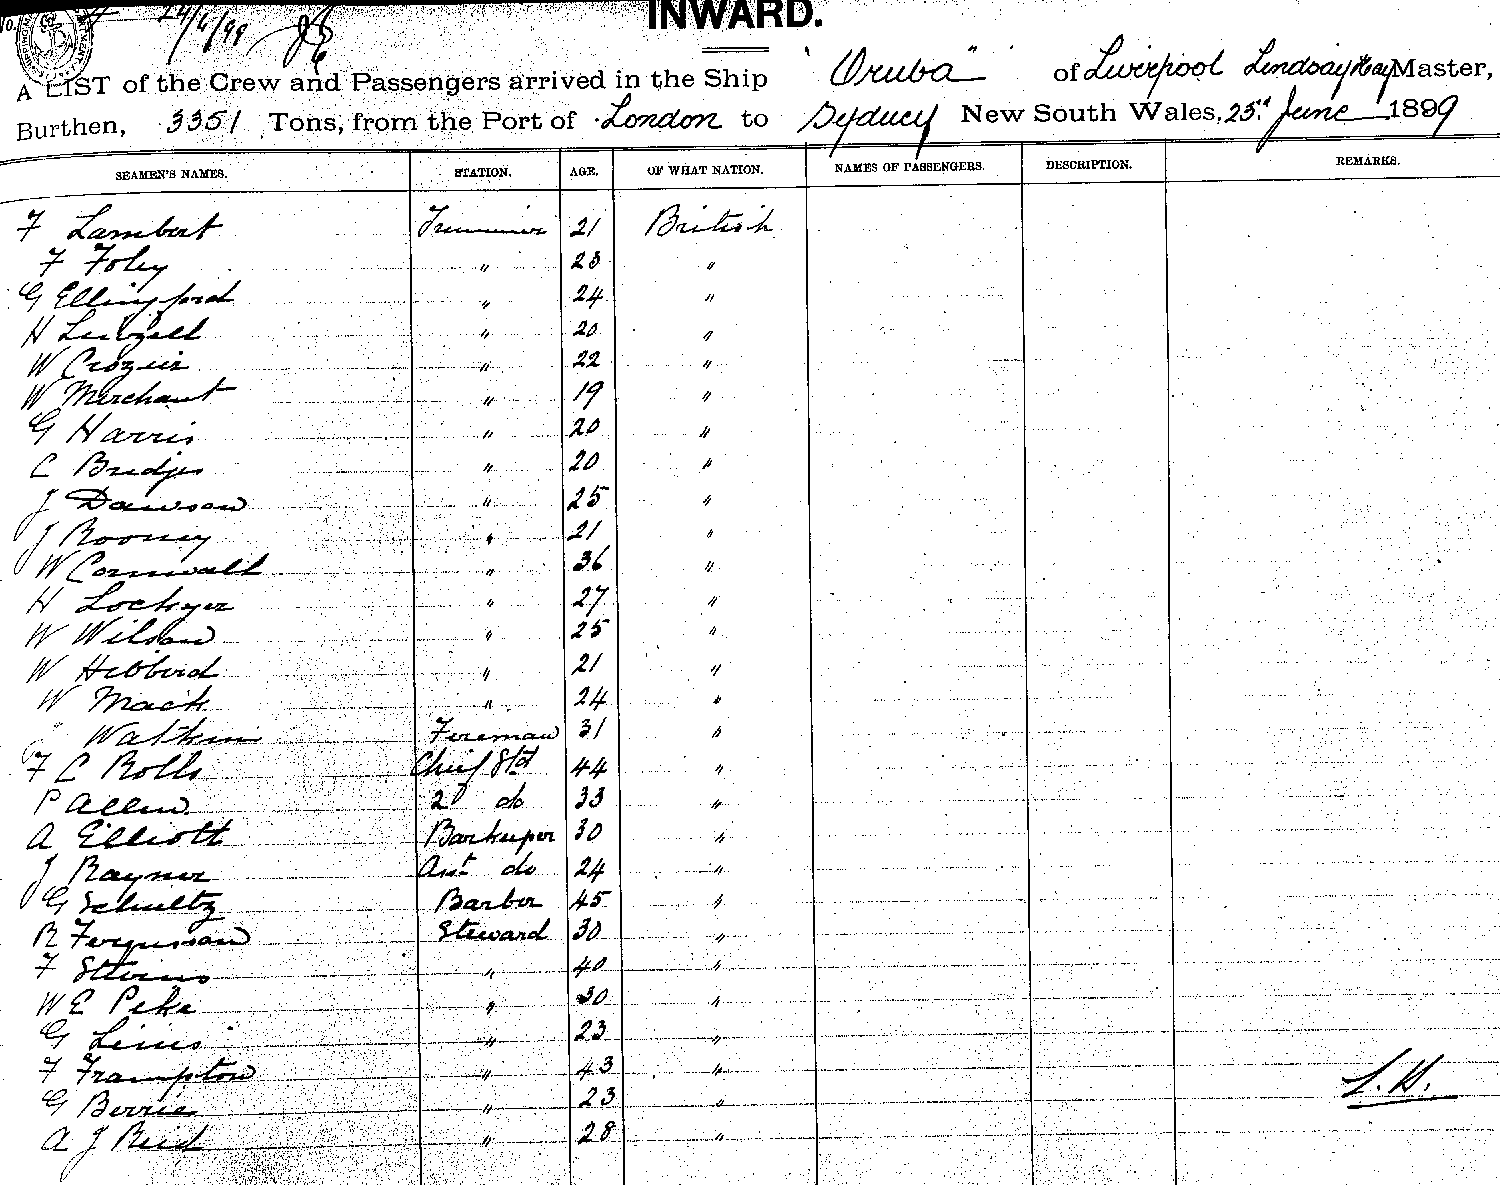 No.
24/6/99
INWARD.
A LIST of the Crew and Passengers arrived in the Ship "Oruba" of Liverpool Lindsay Hay Master,
Burthen, 3351 Tons, from the Port of London to Sydney New South Wales, 23rd June 1899
SEAMEN'S NAMES. STATION. AGE. OF WHAT NATION. NAMES OF PASSENGERS. DESCRIPTION. REMARKS.
F Lambert Trimmer 21 British
F Foley " 23 "
G Ellingford " 24 "
H " 20 "
W Crozier " 22 "
W Merchant " 19 "
G Harris " 20 "
C Bridges " 20 "
J Dawson " 25 "
J Rooney " 21 "
W Cornwall " 36 "
H Lockyer " 27 "
W Wilson " 25 "
W Hibberd " 21 "
W Mack " 24 "
" Watkins Fireman 31 "
F C Rolls Chief Std 44 "
P Allen 2d do 33 "
A Elliott Barkeeper 30 "
J Rayner Asst do 24 "
G Schultz Barber 45 "
R Fergusson Steward 30 "
F Stevens " 40 "
W E Peke " 30 "
G " 23 "
F Frampton " 43 "
L.H.
G Berrie " 23 "
A J Reid " 28 "